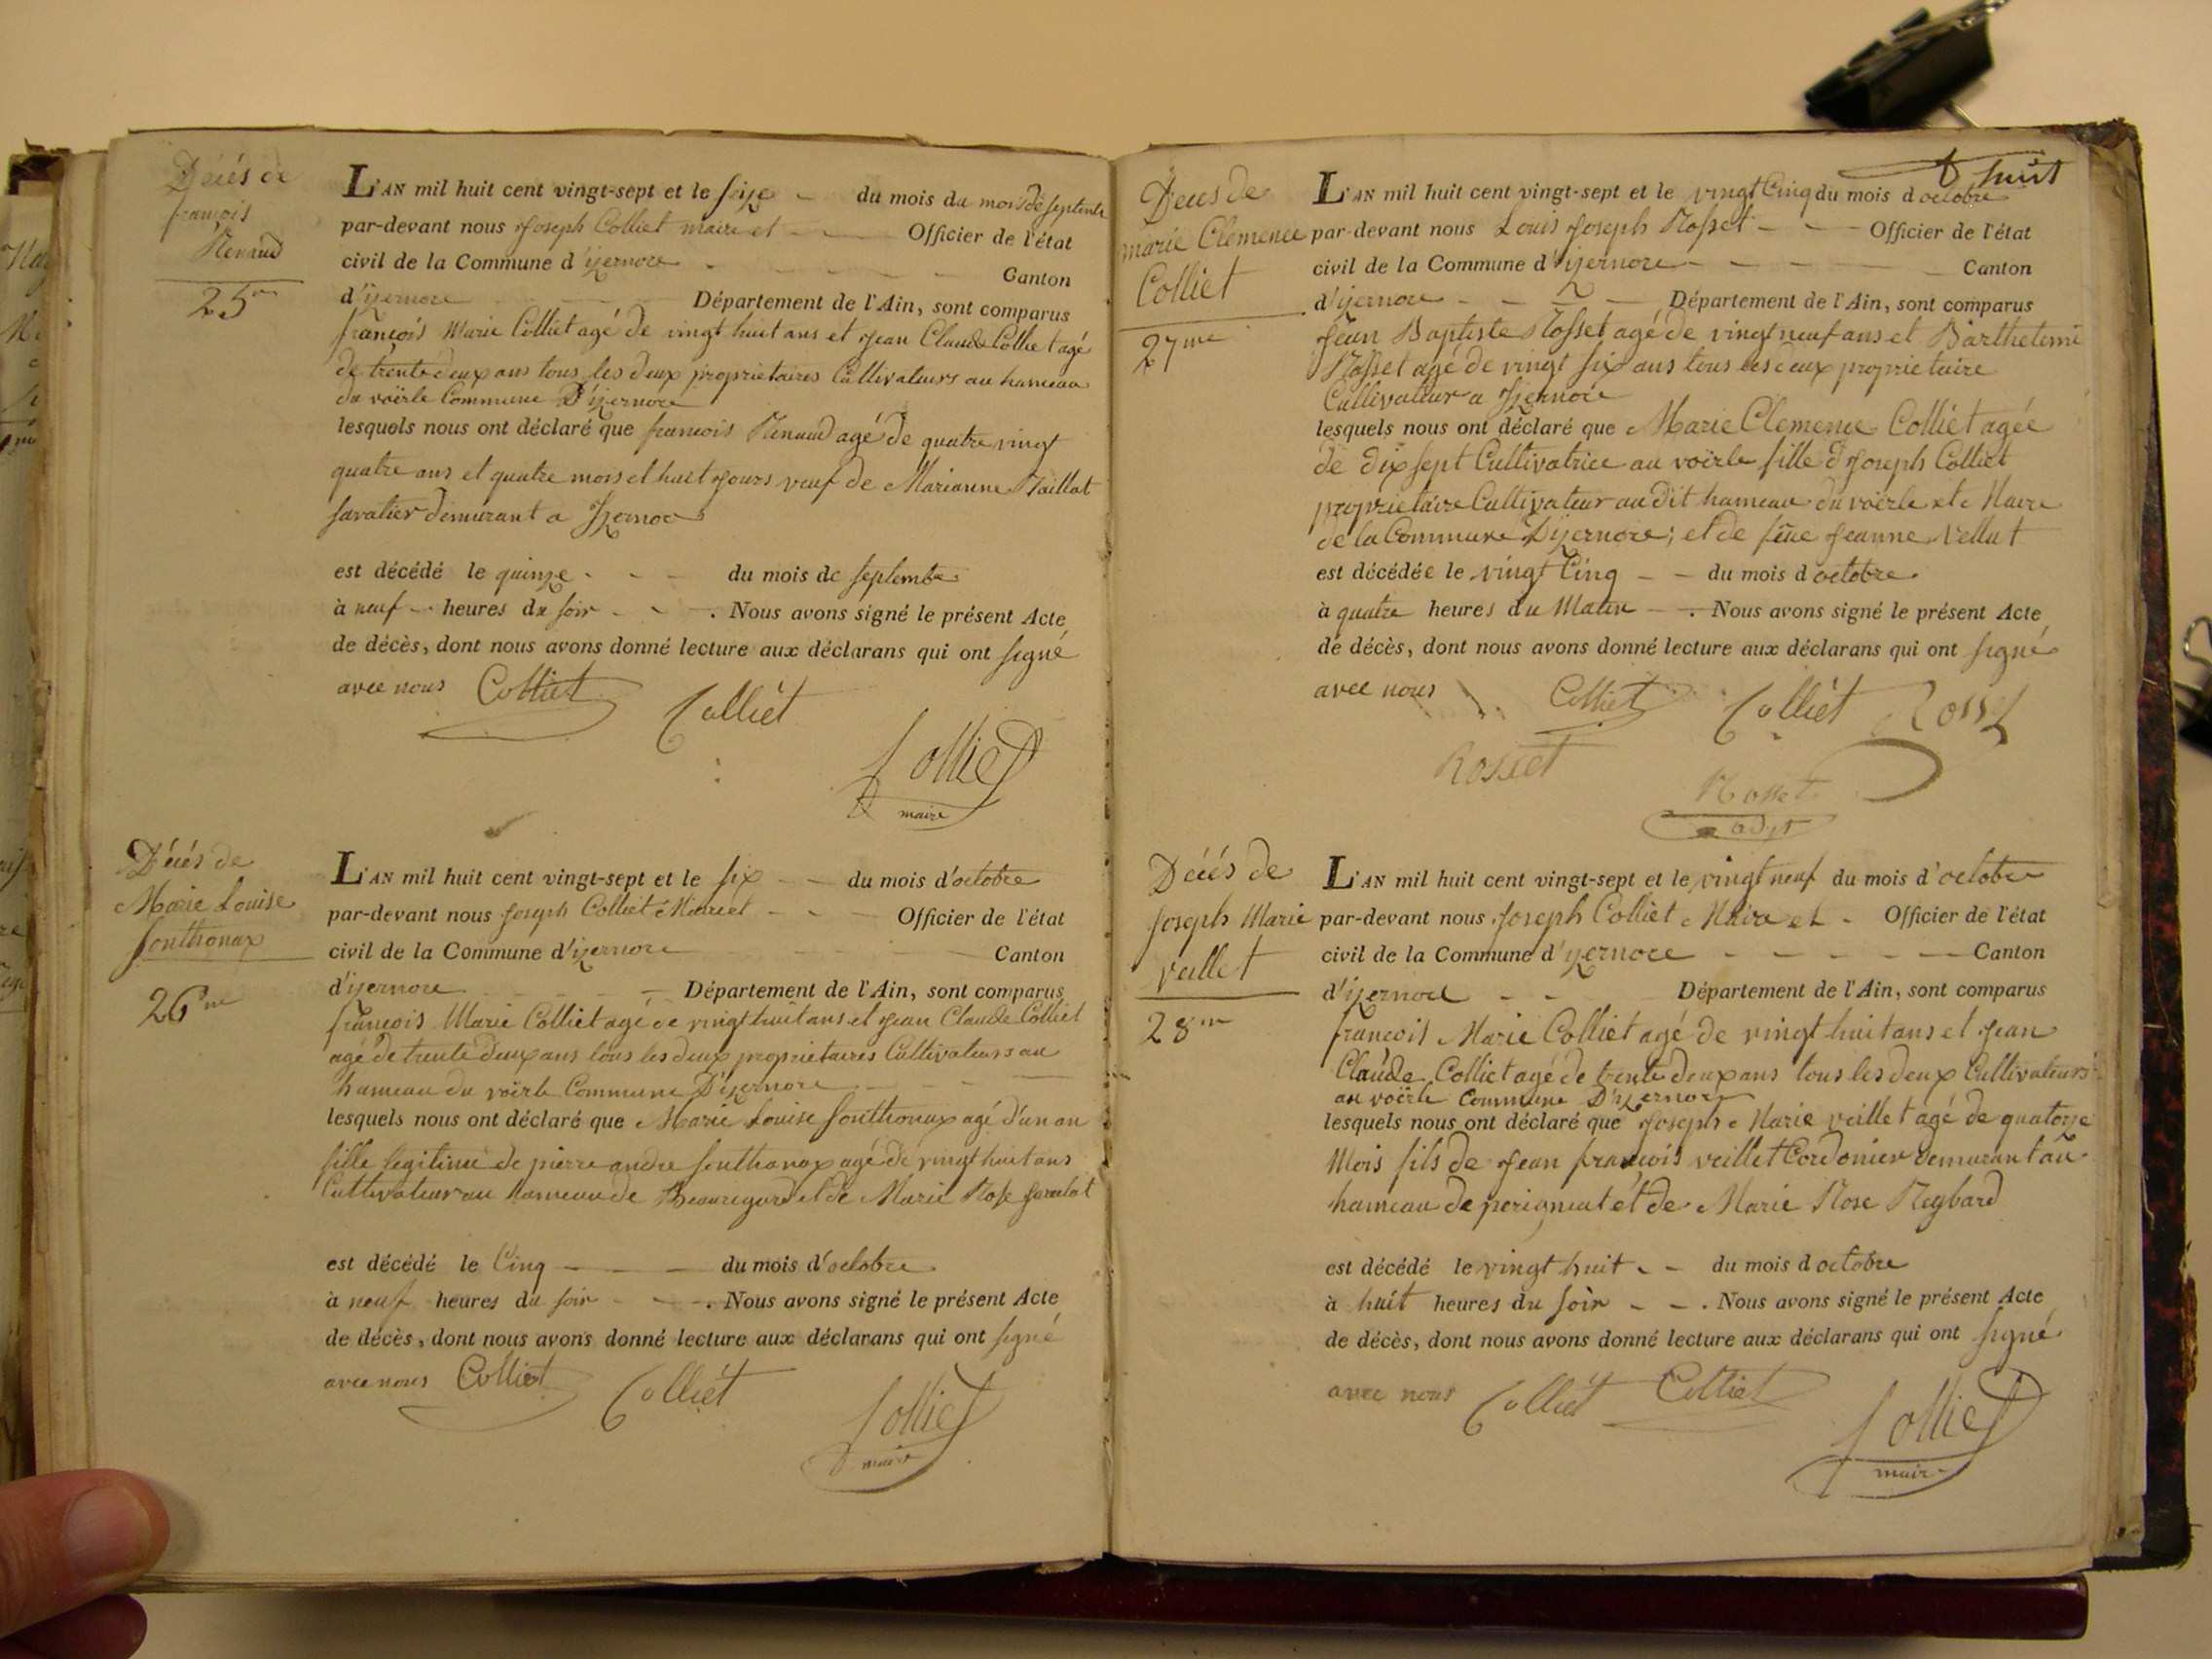 Décés de
françois
Renaud
25me
L'AN mil huit cent vingt-sept et le seize du mois du mois de septembre
par-devant nous Joseph Colliet maire et Officier de l'état
civil de la Commune d'izernore Canton
d'izernore Département de l'Ain, sont comparus
françois Marie Colliet agé de vingt huit ans et Jean Claude Colliet agé
de trente deux ans tous les deux proprietaires Cultivateurs au hameau
du voërle Commune D'izernore
lesquels nous ont déclaré que francois Renaud agé de quatre vingt
quatre ans et quatre mois et huit jours veuf de Marianne Maillat
savatier demurant a Izernore
est décédé le quinze du mois de septembre
à neuf heures du soir . Nous avons signé le présent Acte
de décès, dont nous avons donné lecture aux déclarans qui ont signé
avec nous Colliet Colliét
Colliet
maire
Décés de
Marie Louise
sonthonax
26me
L'AN mil huit cent vingt-sept et le six du mois d'octobre
par-devant nous Joseph Colliet Maire et Officier de l'état
civil de la Commune d'izernore Canton
d'izernore Département de l'Ain, sont comparus
françois Marie Colliet agé de vingt huit ans et Jean Claude Colliet
agé de trente deux ans tous les deux proprietaires Cultivateurs au
hameau du voërle Commune D'izernore
lesquels nous ont déclaré que Marie Louise sonthonax agé d'un an
fille legitime de pierre andre sonthonax agé de vingt huit ans
Cultivateur au hameau de Beauregard et de Marie Rose
est décédé le Cinq du mois d'octobre
à neuf heures du soir . Nous avons signé le présent Acte
de décès, dont nous avons donné lecture aux déclarans qui ont signé
avec nous Colliet Colliét Colliet
maire
huit
Deces de
marie Clemence
Colliet
27me
L'AN mil huit cent vingt-sept et le vingt Cinq du mois d octobre
par-devant nous Louis Joseph Rosset Officier de l'état
civil de la Commune d'izernore Canton
d'izernore Département de l'Ain, sont comparus
Jean Baptiste Rosset agé de vingt neuf ans et Barthelemi
Rosset agé de vingt six ans tous les deux proprietaire
Cultivateur a Izernore
lesquels nous ont déclaré que Marie Clemence Colliét agée
de dix sept Cultivatrice au voërle fille d Joseph Colliet
proprietaire Cultivateur au dit hameau du voërle et Maire
de la Commune D'izernore; et de feüe Jeanne Vellut
est décédée le vingt Cinq du mois d octobre
à quatre heures du Matin . Nous avons signé le présent Acte
de décès, dont nous avons donné lecture aux déclarans qui ont signé
avec nous Colliet Colliét Rosset
Rosset
Rosset
adjt
Décés de
Joseph Marie
veillet
28me
L'AN mil huit cent vingt-sept et le vingt neuf du mois d'octobre
par-devant nous Joseph Colliet Maire et Officier de l'état
civil de la Commune d'izernore Canton
d'izernore Département de l'Ain, sont comparus
francois Marie Colliet agé de vingt huit ans et Jean
Claude Colliet agé de trente deux ans tous les deux Cultivateurs
au voërle Commune D'izernore
lesquels nous ont déclaré que Joseph Marie veillet agé de quatorze
Mois fils de Jean francois veillet Cordonier demurant au
hameau de perignat et de Marie Rose Reybard
est décédé le vingt huit du mois d octobre
à huit heures du soir . Nous avons signé le présent Acte
de décès, dont nous avons donné lecture aux déclarans qui ont signé
avec nous Colliét Colliet Colliet
maire